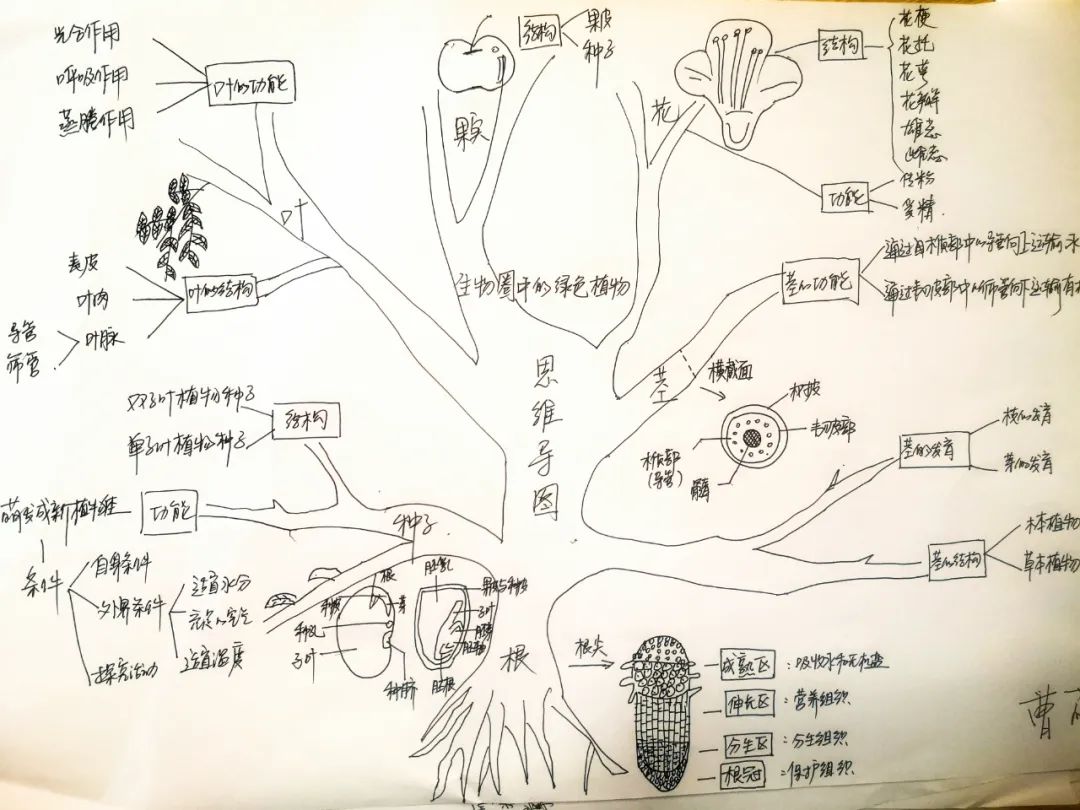 光合作用
呼吸作用
蒸腾作用
叶的功能
叶
表皮
叶肉
叶脉
导管
筛管
叶的结构
果实
结构
果皮
种子
花
结构
花梗
花托
花萼
花瓣
雄蕊
雌蕊
功能
传粉
受精
生物圈中的绿色植物
思维导图
茎
茎的功能
通过木质部中的导管向上运输水
通过韧皮部中的筛管向下运输有机
横截面
树皮
韧皮部
木质部
(导管)
茎的发育
芽的发育
茎的结构
木本植物
草本植物
双子叶植物种子
单子叶植物种子
结构
种子
功能
萌发成新植株
条件
自身条件
外界条件
适宜水分
适宜温度
探究活动
根
种皮
子叶
种脐
胚乳
果皮与种皮
子叶
胚根
根
根尖
成熟区:吸收水和无机盐
伸长区:营养组织
分生区:分生组织
根冠:保护组织
曹